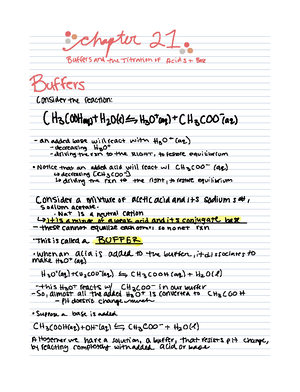 chapter 21
Buffers and the Titration of Acids + Base
Buffers
Consider the reaction:
CH₃COOH(aq) + H₂O(l) ⇆ H₃O⁺(aq) + CH₃COO⁻(aq)
- an added base will react with H₃O⁺(aq)
- decreasing H₃O⁺
- driving the rxn to the right, to restore equilibrium
• Notice that an added acid will react w/ CH₃COO⁻(aq)
↳ decreasing CH₃COO⁻
↳ driving the rxn to the right, to restore equilibrium
Consider a mixture of acetic acid and its sodium salt,
sodium acetate.
• Na⁺ is a neutral cation
↳ it is a mix of a weak acid and its conjugate base
- these cannot equalize each other so no net rxn
This is called a BUFFER
• when an acid is added to the buffer, it dissociates to
make H₃O⁺(aq)
H₃O⁺(aq) + CH₃COO⁻(aq) ⇆ CH₃COOH(aq) + H₂O(l)
- this H₃O⁺ reacts w/ CH₃COO⁻ in our buffer
- So, almost all the added H₃O⁺ is converted to CH₃COOH
- pH doesn't change much
• Suppose a base is added
CH₃COOH(aq) + OH⁻(aq) ⇆ CH₃COO⁻ + H₂O(l)
Altogether we have a solution, a buffer, that resists pH change,
by reacting completely with added acid or base